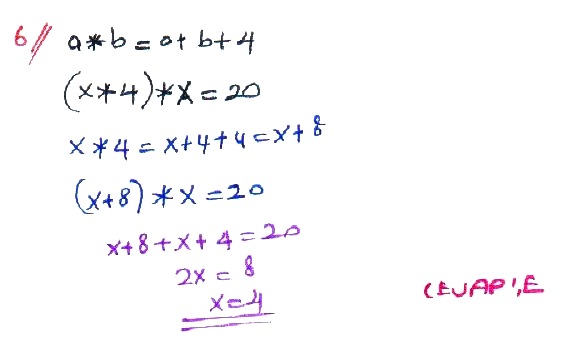 6// a*b=a+b+4
(x*4)*x=20
x*4=x+4+4=x+8
(x+8)*x=20
x+8+x+4=20
2x=8
x=4
CEVAP:E